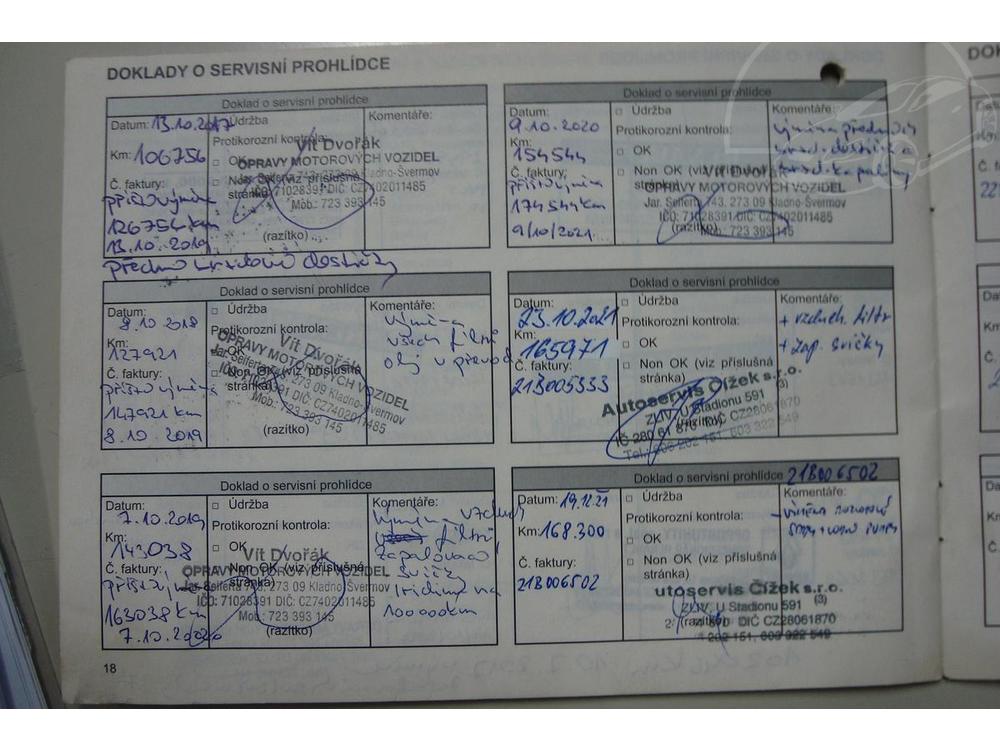 DOKLADY O SERVISNÍ PROHLÍDCE
Doklad o servisní prohlídce
Datum: 13.10.2017
Údržba
Komentáře:
Protikorozní kontrola:
Km: 106756
OK
Č. faktury:
Non OK (viz příslušná stránka)
Vít Dvořák
OPRAVY MOTOROVÝCH VOZIDEL
Jar. Seiferta 743, 273 09 Kladno-Švermov
IČO: 71028391 DIČ: CZ7402011485
Mob.: 723 393 145
(razítko)
příští výměna
126756 km
13.10.2019
předno brzdové destičky
Doklad o servisní prohlídce
Datum:
8.10 2018
Údržba
Komentáře:
výměna
všech filtrů
olej v převod
Protikorozní kontrola:
Km:
127921
OK
Č. faktury:
Non OK (viz příslušná
stránka)
Vít Dvořák
OPRAVY MOTOROVÝCH VOZIDEL
Jar. Seiferta 743, 273 09 Kladno-Švermov
IČO: 71028391 DIČ: CZ7402011485
Mob.: 723 393 145
(razítko)
příští výměna
147921 km
8.10 2019
Doklad o servisní prohlídce
Datum:
7.10.2019
Údržba
Komentáře:
výměna vzduch
filtrů
zapalovac
svíčky
iridium na
100000km
Protikorozní kontrola:
Km:
143038
OK
Č. faktury:
Non OK (viz příslušná
stránka)
Vít Dvořák
OPRAVY MOTOROVÝCH VOZIDEL
Jar. Seiferta 743, 273 09 Kladno-Švermov
IČO: 71028391 DIČ: CZ7402011485
Mob.: 723 393 145
(razítko)
163038 km
7.10.2020
18
Doklad o servisní prohlídce
Datum:
9.10.2020
Údržba
Komentáře:
výměna předních
Protikorozní kontrola:
Km:
154544
OK
Č. faktury:
Non OK (viz příslušná
stránka)
Vít Dvořák
OPRAVY MOTOROVÝCH VOZIDEL
Jar. Seiferta 743, 273 09 Kladno-Švermov
IČO: 71028391 DIČ: CZ7402011485
Mob.: 723 393 145
(razítko)
příští výměna
174544km
9/10/2021
Doklad o servisní prohlídce
Datum:
23.10.2021
Údržba
Komentáře:
+ vzduch. filtr
+ zap. svíčky
Protikorozní kontrola:
Km:
165971
OK
Č. faktury:
21B005333
Non OK (viz příslušná
stránka)
Autoservis Čížek s.r.o.
(3)
ZLIV, U Stadionu 591
IČ 280 61 870 DIČ CZ28061870
(razítko)
Doklad o servisní prohlídce 21B006502
Datum: 19.12.21
Údržba
Komentáře:
- výměna
Protikorozní kontrola:
Km: 168.300
OK
Č. faktury:
21B006502
Non OK (viz příslušná
stránka)
utoservis Čížek s.r.o.
ZLIV, U Stadionu 591 (3)
DIČ CZ28061870
(razítko)